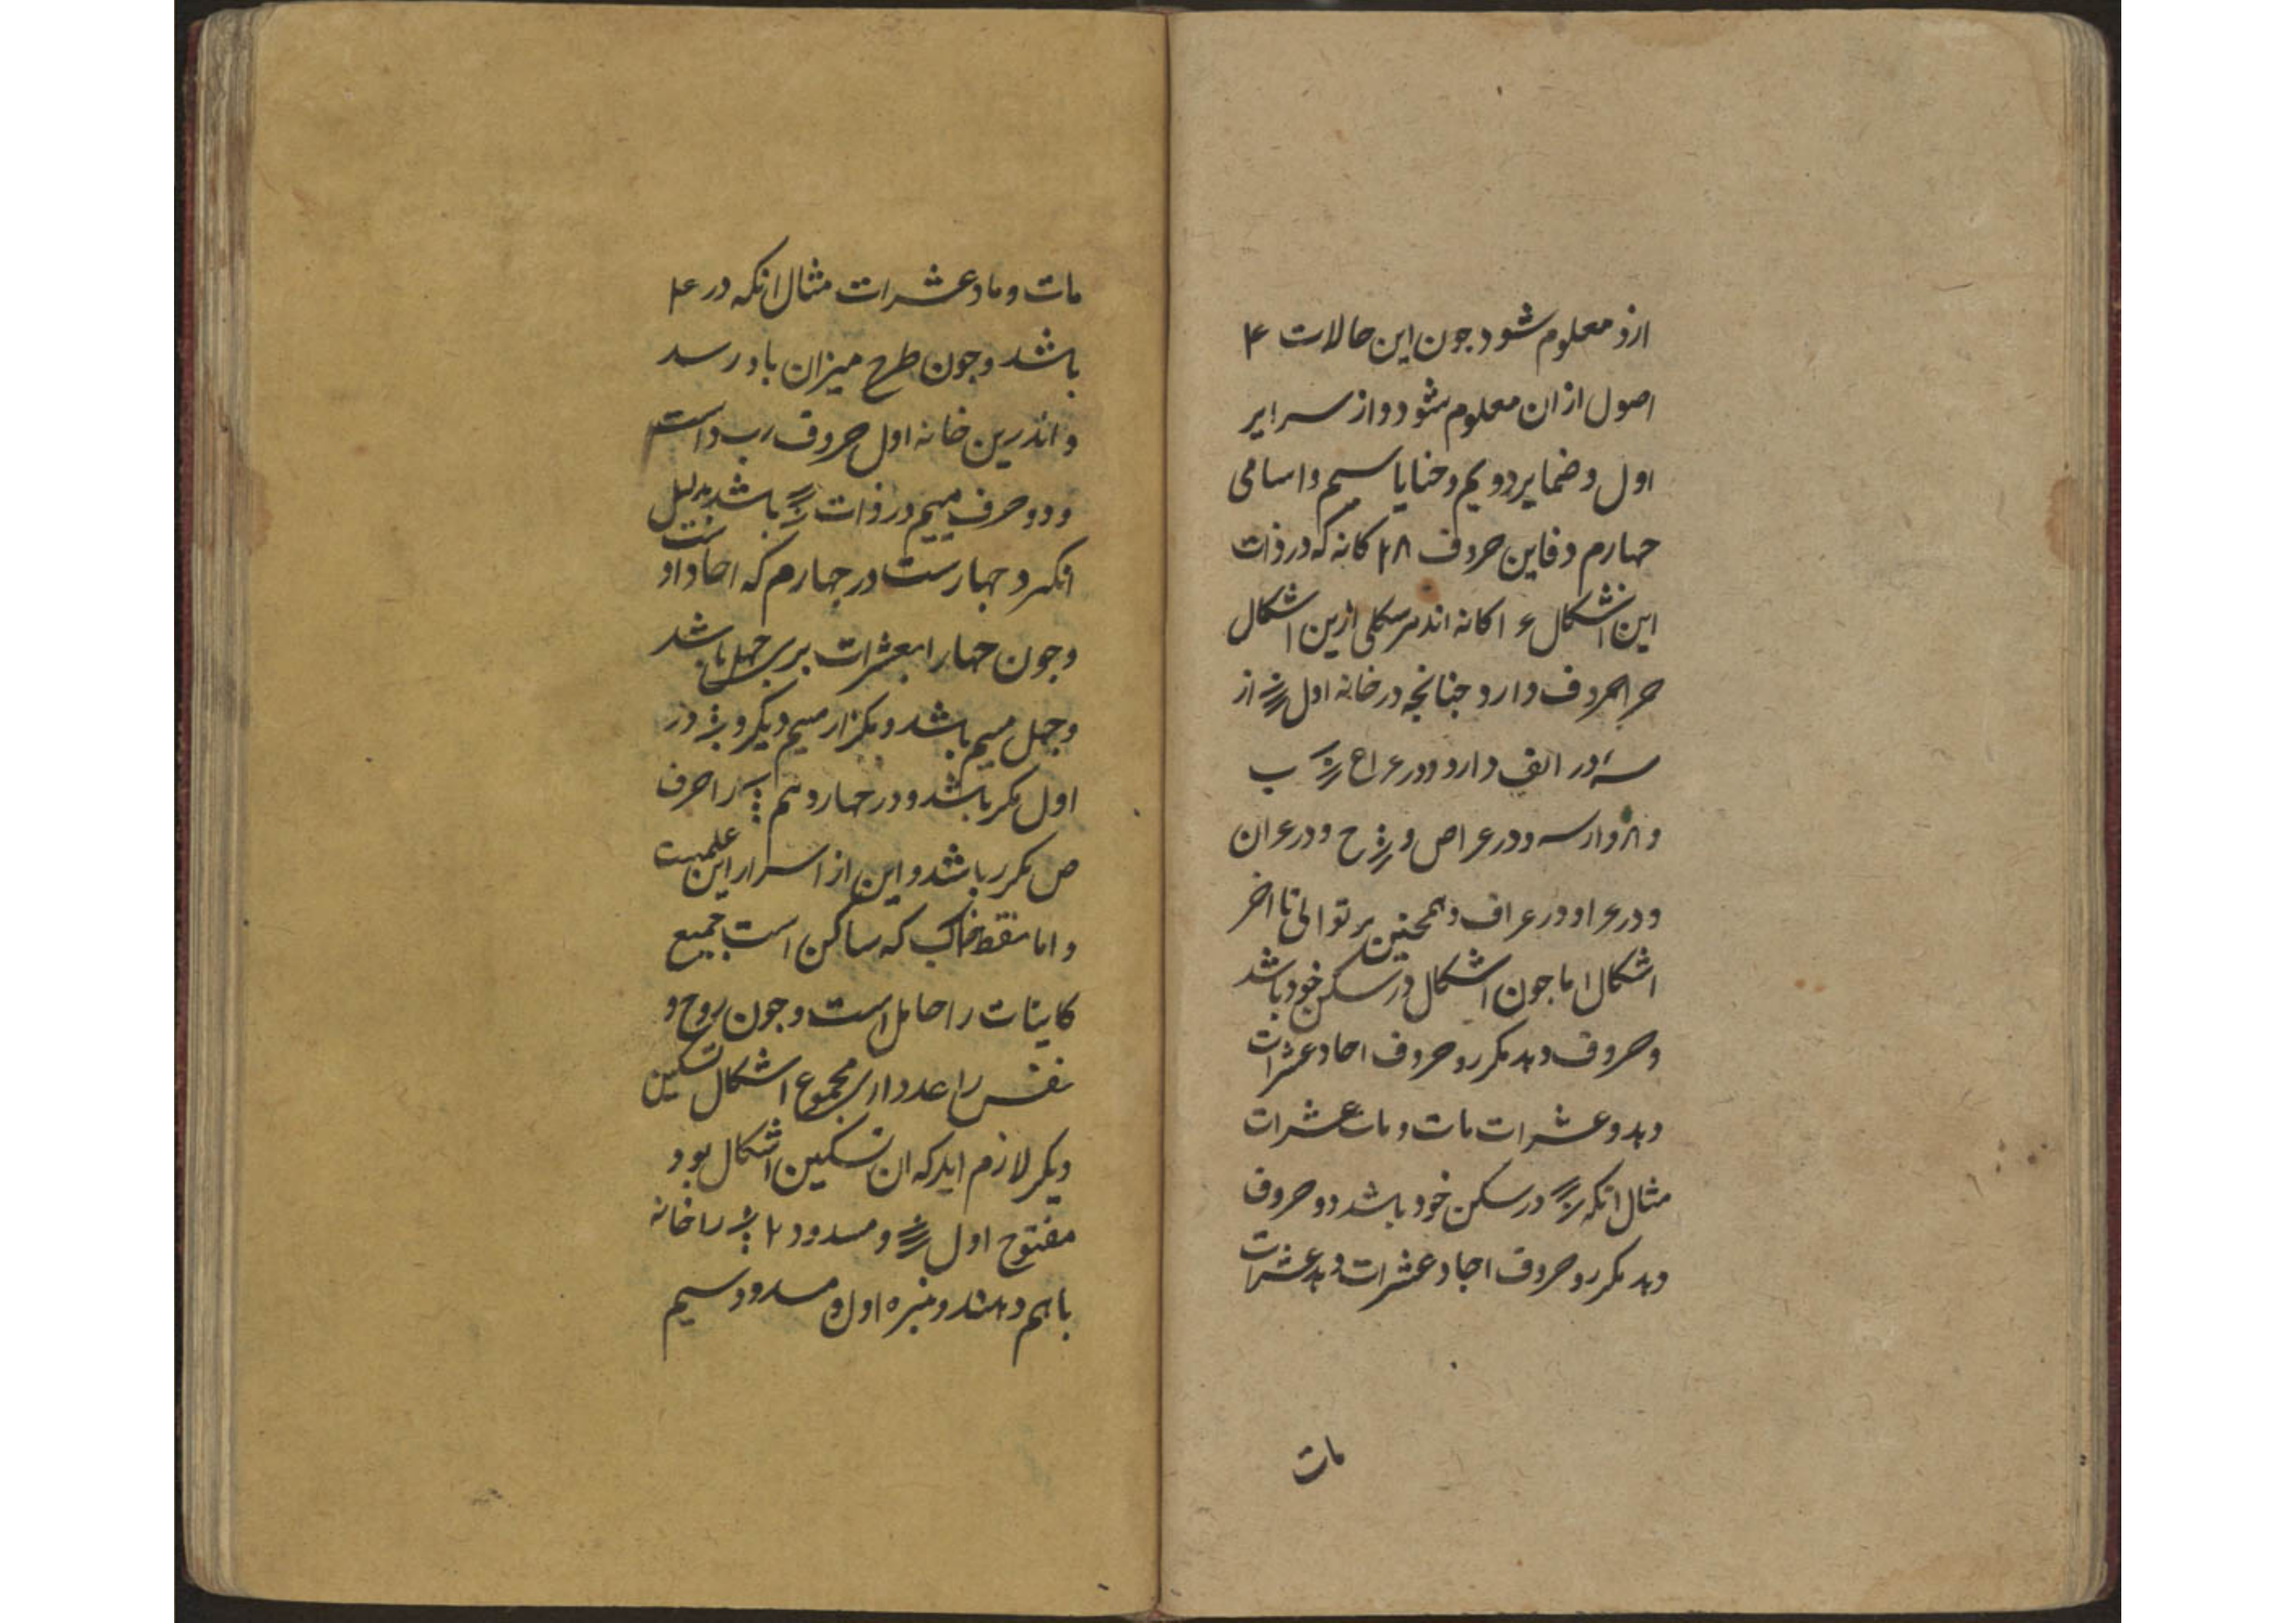 ازو معلوم شود جون این حالات ۴
اصول ازان معلوم شود و از سرایر
اول و ضمایر دویم و خنایا سیم و اسامی
جهارم دفاین حروف ۲۸ کانه که در ذات
این اشکال ۱۶ کانه اند هر شکلی ازین اشکال
حروف دارد جنانجه در خانه اول از
در الف دارد و در ب
و در ص و ح و در ان
و در و در ف و همجنین بر توالی تا اخر
اشکال اما جون اشکال در سکن خود باشد
و حروف دهد مکرر و حروف احاد عشرات
دهد و عشرات مات و مات عشرات
مثال انکه در سکن خود باشد دو حروف
دهد مکرر و حروف احاد عشرات دهد عشرات
مات
مات و ماد عشرات مثال انکه در ۴
باشد و جون طرح میزان باو رسد
و اندرین خانه اول حروف است
و دو حرف میم در ذات باشد بدلیل
انکه جهارست در جهارم که احاد او
و جون جهار را بعشرات بری جهل باشد
و جهل میم باشد و تکرار میم دیکر و در
اول مکر باشد و در جهاردهم را حرف
ص مکرر باشد و این از اسرار این علمست
و اما نقطه خاک که ساکن است جمیع
کاینات را حامل است و جون روح و
نفس را عدد از مجموع اشکال تسکین
دیکر لازم اید که ان تسکین اشکال بود
مفتوح اول و مسدود ۲ را خانه
باهم دهند و اول و مسدود سیم